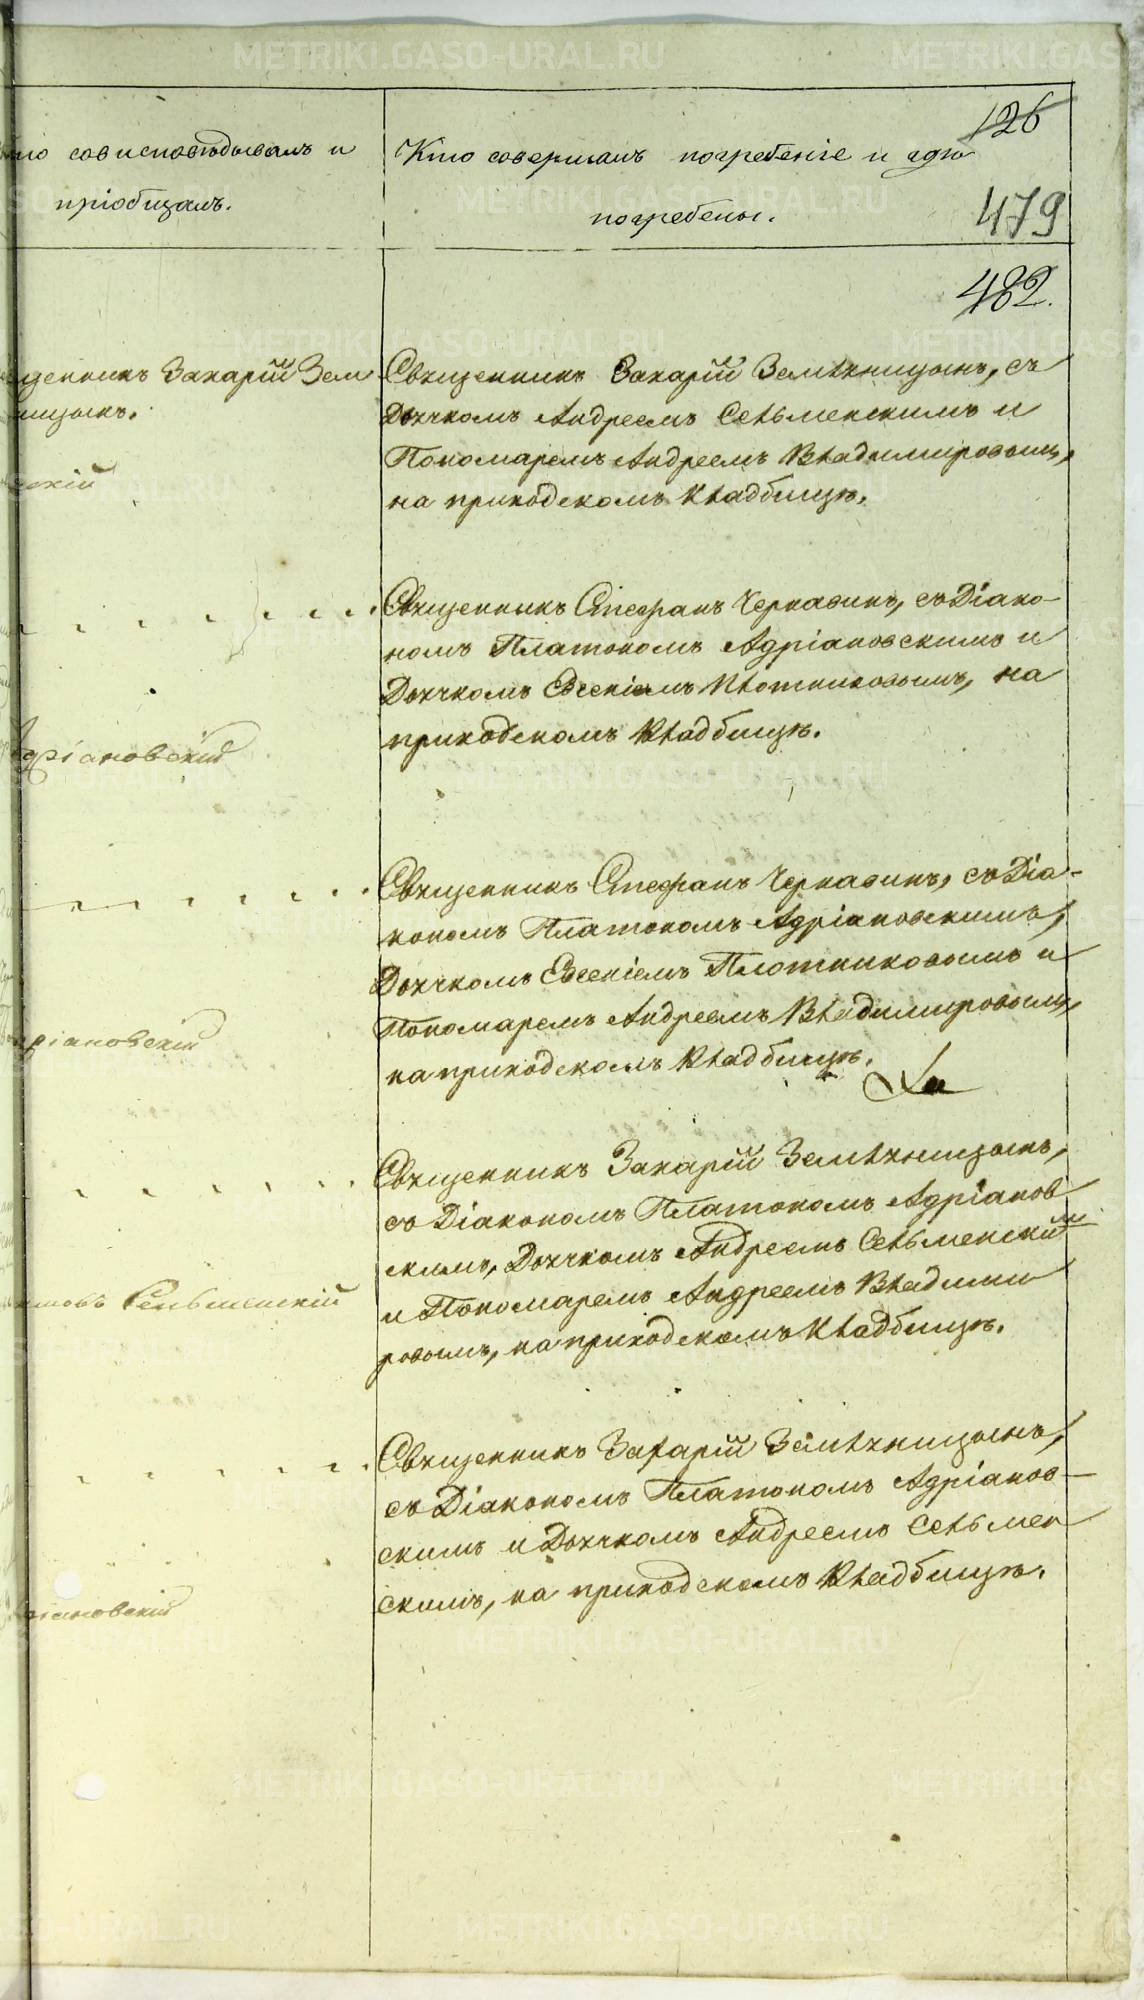 126
Кто совершалъ погребеніе и гдѣ
погребены.
479
482.
то исповѣдывалъ и
пріобщалъ.
щенникъ Захарій Зем
ницынъ.
скій
Священникъ Захарій Земляницынъ, съ
Дьячкомъ Андреемъ Сельменскимъ и
Пономаремъ Андреемъ Владимировымъ,
на приходскомъ кладбищѣ.
Священникъ Стефанъ Черкасинъ, съ Діако-
номъ Платономъ Адріановскимъ и
Дьячкомъ Евсеніемъ Плотниковымъ, на
приходскомъ кладбищѣ.
дріановскій
Священникъ Стефанъ Черкасинъ, съ Діа-
кономъ Платономъ Адріановскимъ,
Дьячкомъ Евсеніемъ Плотниковымъ и
Пономаремъ Андреемъ Владимировымъ,
на приходскомъ кладбищѣ.
ріановскій
Священникъ Захарій Земляницынъ,
съ Діакономъ Платономъ Адріанов
скимъ, Дьячкомъ Андреемъ Сельменскимъ
и Пономаремъ Андреемъ Владими
ровымъ, на приходскомъ кладбищѣ.
Сельменскій
Священникъ Захарій Земляницынъ,
съ Діакономъ Платономъ Адріанов-
скимъ и Дьячкомъ Андреемъ Сельмен
скимъ, на приходскомъ кладбищѣ.
ріановскій
METRIKI.GASO-URAL.RU